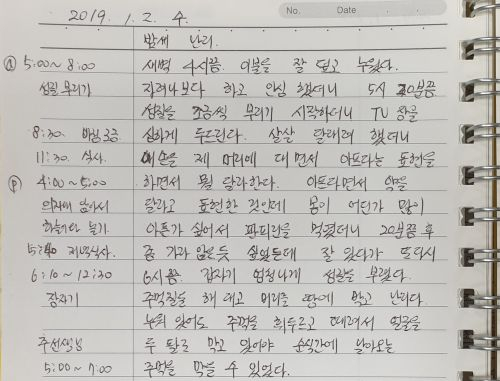 No.
Date
2019. 1. 2. 수.
밤새 난리.
5:00 ~ 8:00 새벽 4시쯤. 이불을 잘 덮고 누웠다.
성질 부리기 자려나보다 하고 안심 했더니 5시 20분쯤
성질을 조금씩 부리기 시작하더니 TV 장을
8:30. 조금. 심하게 두드린다. 살살 달래려 했더니
11:30. 식사. 손을 제 머리에 대면서 아프다는 표현을
4:00 ~ 5:00 하면서 뭘 달라한다. 아프다면서 약을
의자에 앉아서 달라고 표현한 것인데 몸이 어딘가 많이
놀기 아픈가 싶어서 판피린을 먹였더니 20분쯤 후
5:40 저녁식사. 좀 가라 앉을듯 싶었는데 잘 있다가 또다시
6:10 ~ 12:30 6시쯤. 갑자기 엄청나게 성질을 부렸다.
잠자기 주먹질을 해 대고 머리를 땅에 박고 난리다.
누워 있어도 주먹을 휘두르고 때려서 얼굴을
주선생님 두 팔로 막고 있어야 순식간에 날아오는
5:00 ~ 7:00 주먹을 막을 수 있었다.